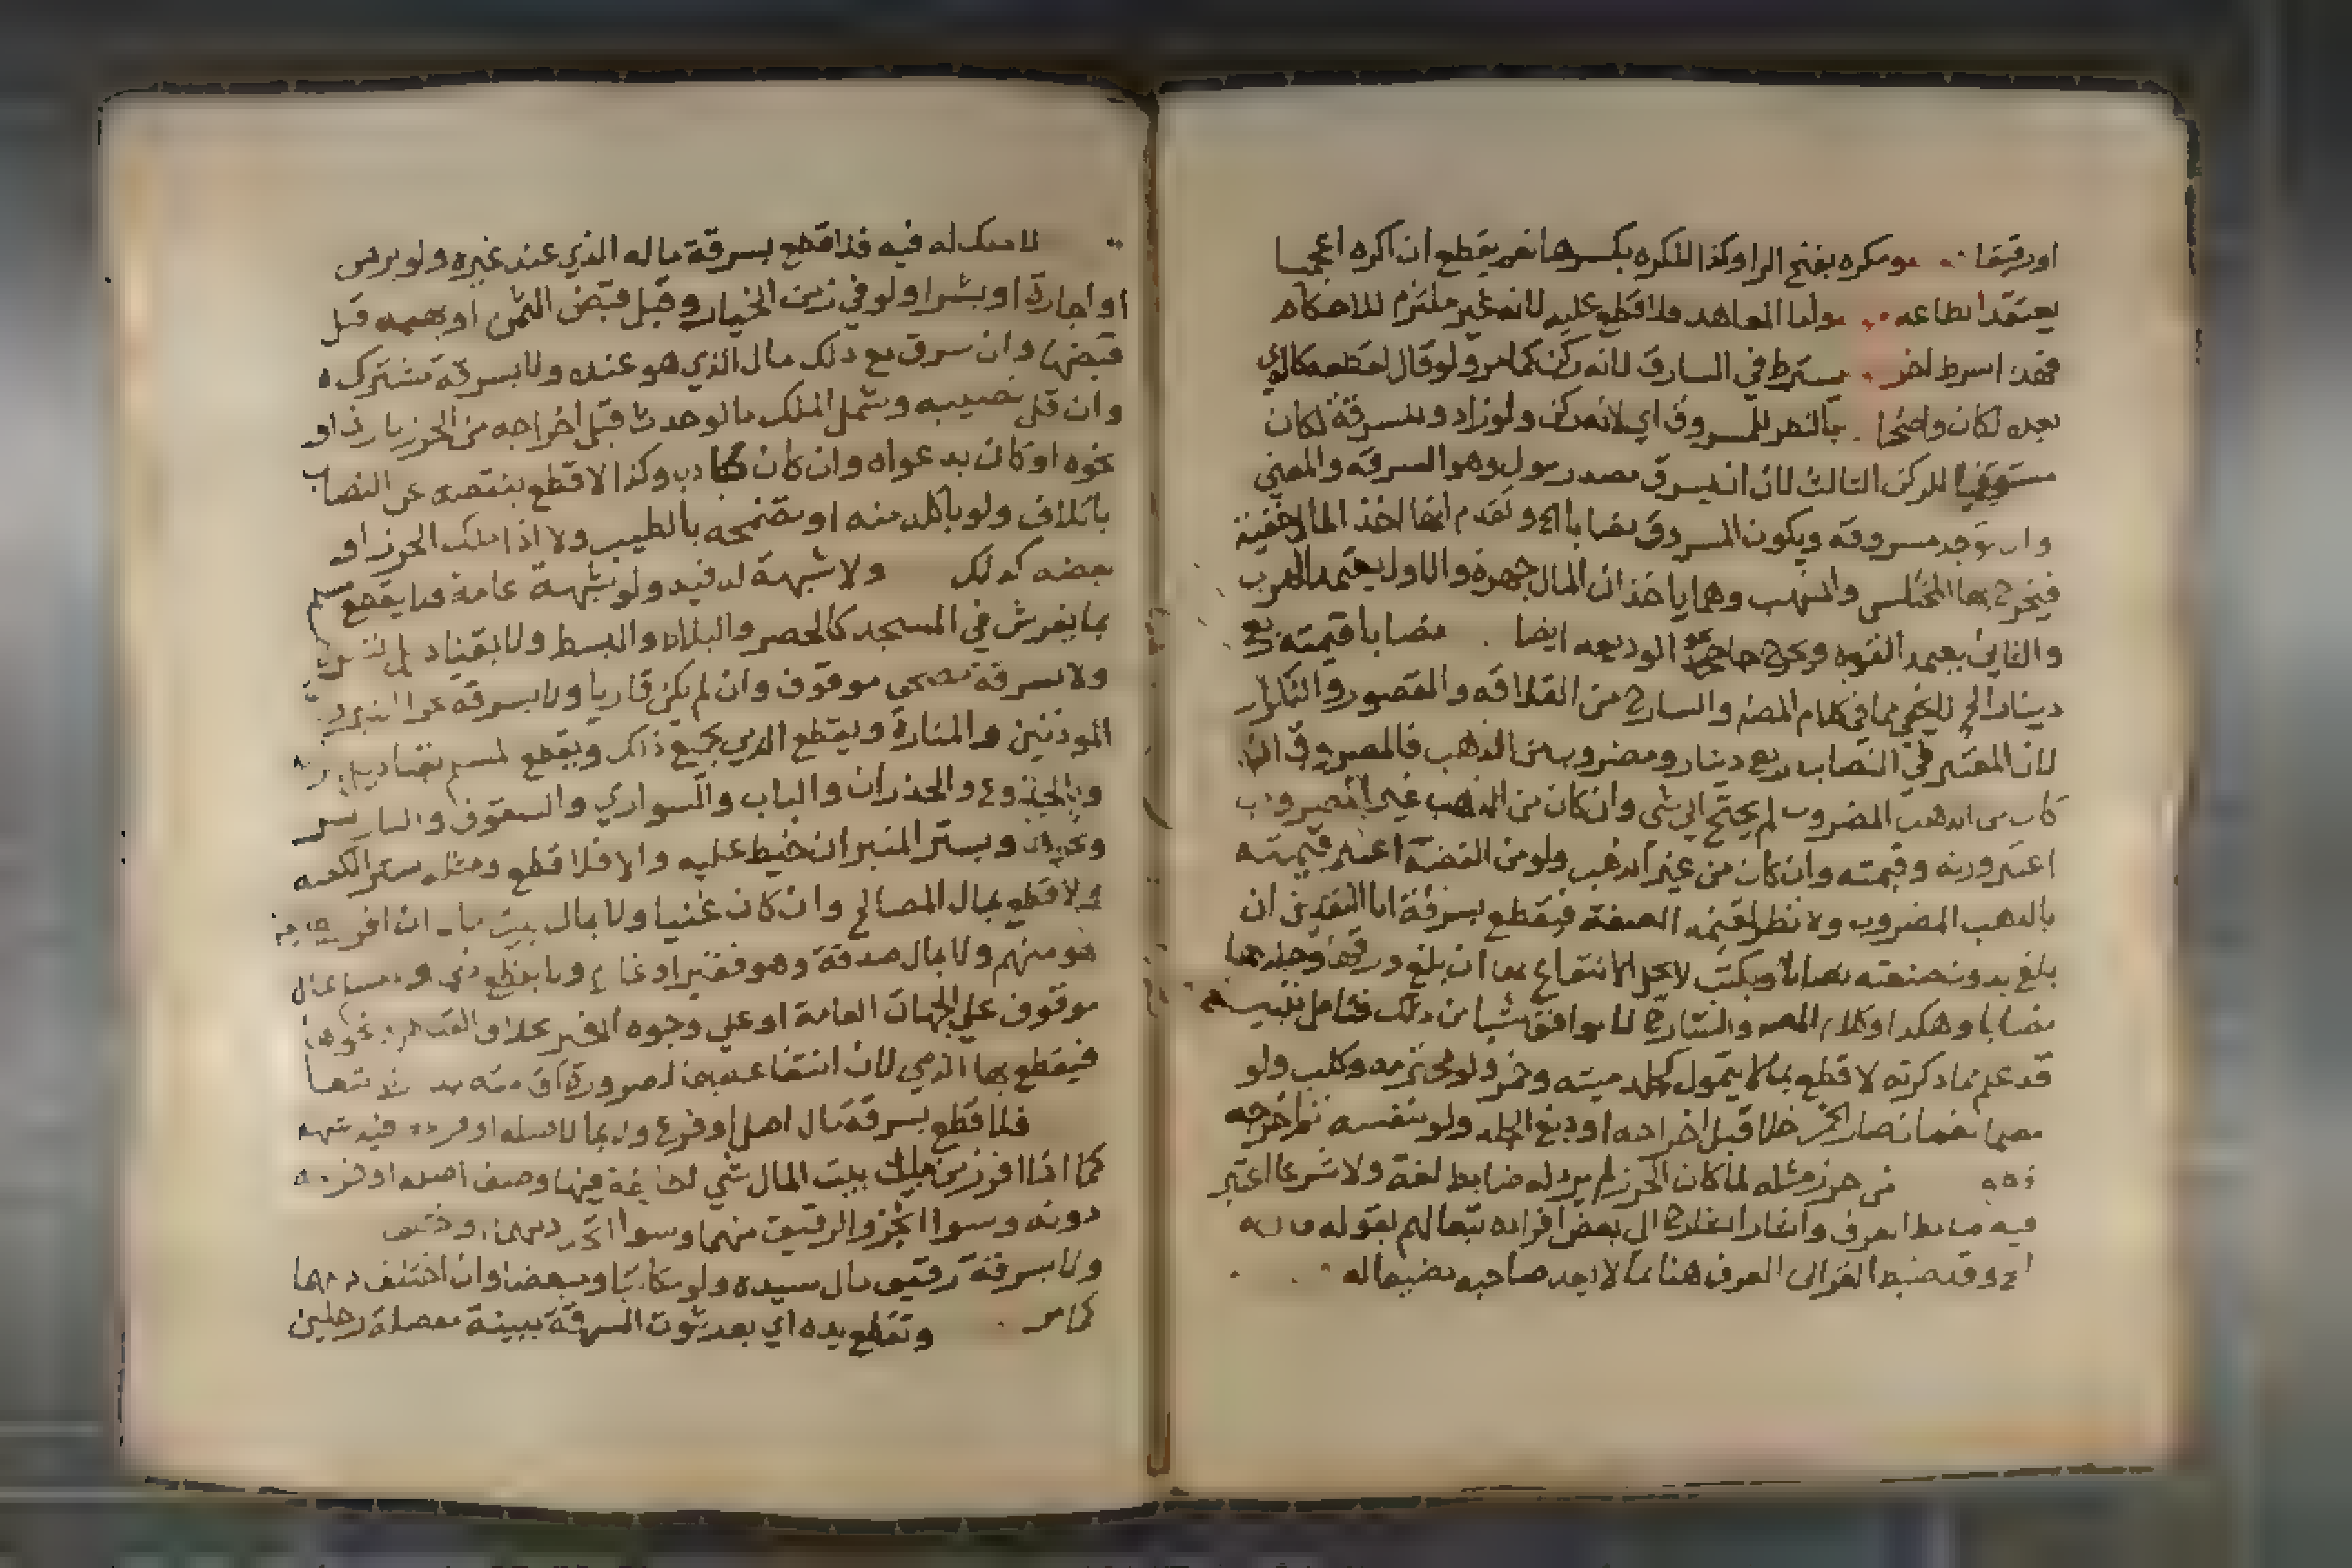 او رقيقا ومكره بفتح الرا وكذا المكره بكسرها نعم يقطع ان اكره اعجميا
يعتقد اطاعه واما المعاهد فلا قطع عليه لانه غير ملتزم للاحكام
فهذا شرط اخر يشترط في السارق لانه ركن كما مر ولو قال لقطعه كالذي
بعده لكان واضحا بالنظر للمسروق اي لانه ركن ولو زاد وللسرقة لكان
مستوفيا للركن الثالث لان ان يسرق مصدر مول وهو السرقة والمعني
وان توجد سرقة ويكون المسروق نصابا الخ وتقدم انها اخذ المال خفية
فيخرج بها المختلس والمنتهب وهما ياخذان المال جهرة والاول يعتمد الهرب
والثاني يعتمد القوة وخرج جاحد الوديعه ايضا نصابا قيمته ربع
دينار الخ لا يخفي ما في كلام المصنف والشارح من القلاقه والقصور والتكرار
لان المعتبر في النصاب ربع دينار ومضروب من الذهب فالمسروق ان
كان من الذهب المضروب لم يحتج الي شي وان كان من الذهب غير المضروب
اعتبر وزنه وقيمته وان كان من غير الذهب ولو من الفضة اعتبر قيمته
بالذهب المضروب ولا نظر لقيمة الصنعة فيقطع بسرقة انا النقدين ان
بلغ بدون صنعته نصابا وبكتب لا يحل الانتفاع بها ان بلغ ورقها وجلدها
نصابا وهكذا وكلام المصنف والشارح لا يوافق شيا من ذلك فتامل تنبيه
قد علم مما ذكرته لا قطع بما لا يتمول كجلد ميتة وخمر ولو محترمه وكلب ولو
معلما نعم ان صار الخمر خلا قبل اخراجه او دبغ الجلد ولو بنفسه ثم اخرجه
من حرز مثله لما كان الحرز لم يرد له ضابط لغة ولا شرعا اعتبر
فيه ضابط العرف واشار الشارح الي بعض افراده تبعا لهم بقوله فان
الخ وقد ضبط الغزالي العرف هنا بما لا يعد صاحبه مضيعا له
لا ملك له فيه فلا قطع بسرقة ماله الذي عند غيره ولو برهن
او اجارة او بشرا ولو في زمن الخيار وقبل قبض الثمن او بهبة قبل
قبضها وان سرق مع ذلك مال الذي هو عنده ولا بسرقة مشترك
وان قل نصيبه وشمل الملك ما لو حدث قبل اخراجه من الحرز بارث او
نحوه او كان بدعواه وان كان كاذب وكذا لا قطع بنقصه عن النصاب
باتلاف ولو باكله منه او تضمخه بالطيب ولا اذا ملك الحرز او
بعضه كذلك ولا شبهة له فيه ولو شبهة عامة فلا يقطع مسلم
بما يفرش في المسجد كالحصر والبلاط والبسط ولا بقناديل
ولا بسرقة مصحف موقوف وان لم يكن قاريا ولا بسرقة
الموذنين والمنارة ويقطع الذمي بجميع ذلك ويقطع المسلم بقناديل
وبالجذوع والجدران والباب والسواري والسقوف
وبستر المنبر ان خيط عليه والا فلا قطع ومثله ستر الكعبه
ولا قطع بمال المصالح وان كان غنيا ولا بمال بيت مال ان افرز
هو منهم ولا بمال صدقة وهو فقير او غارم ولا يقطع
موقوف علي الجهات العامة او علي وجوه الخير
فيقطع بها الذمي لان انتفاعه بها لضرورة
فلا قطع بسرقة مال اصل او فرع ولا بما لاصله او فرعه فيه شبهه
كما اذا افرز من بيت المال شي لطايفة فيها وصف اصله او فرعه
دونه وسوا الحر والرقيق منهما وسوا اتحد دينهما
ولا بسرقة رقيق مال سيده ولو مكاتبا ومبعضا وان اختلف دينهما
كما مر وتقطع يده اي بعد ثبوت السرقة ببينة مفصلة رجلين